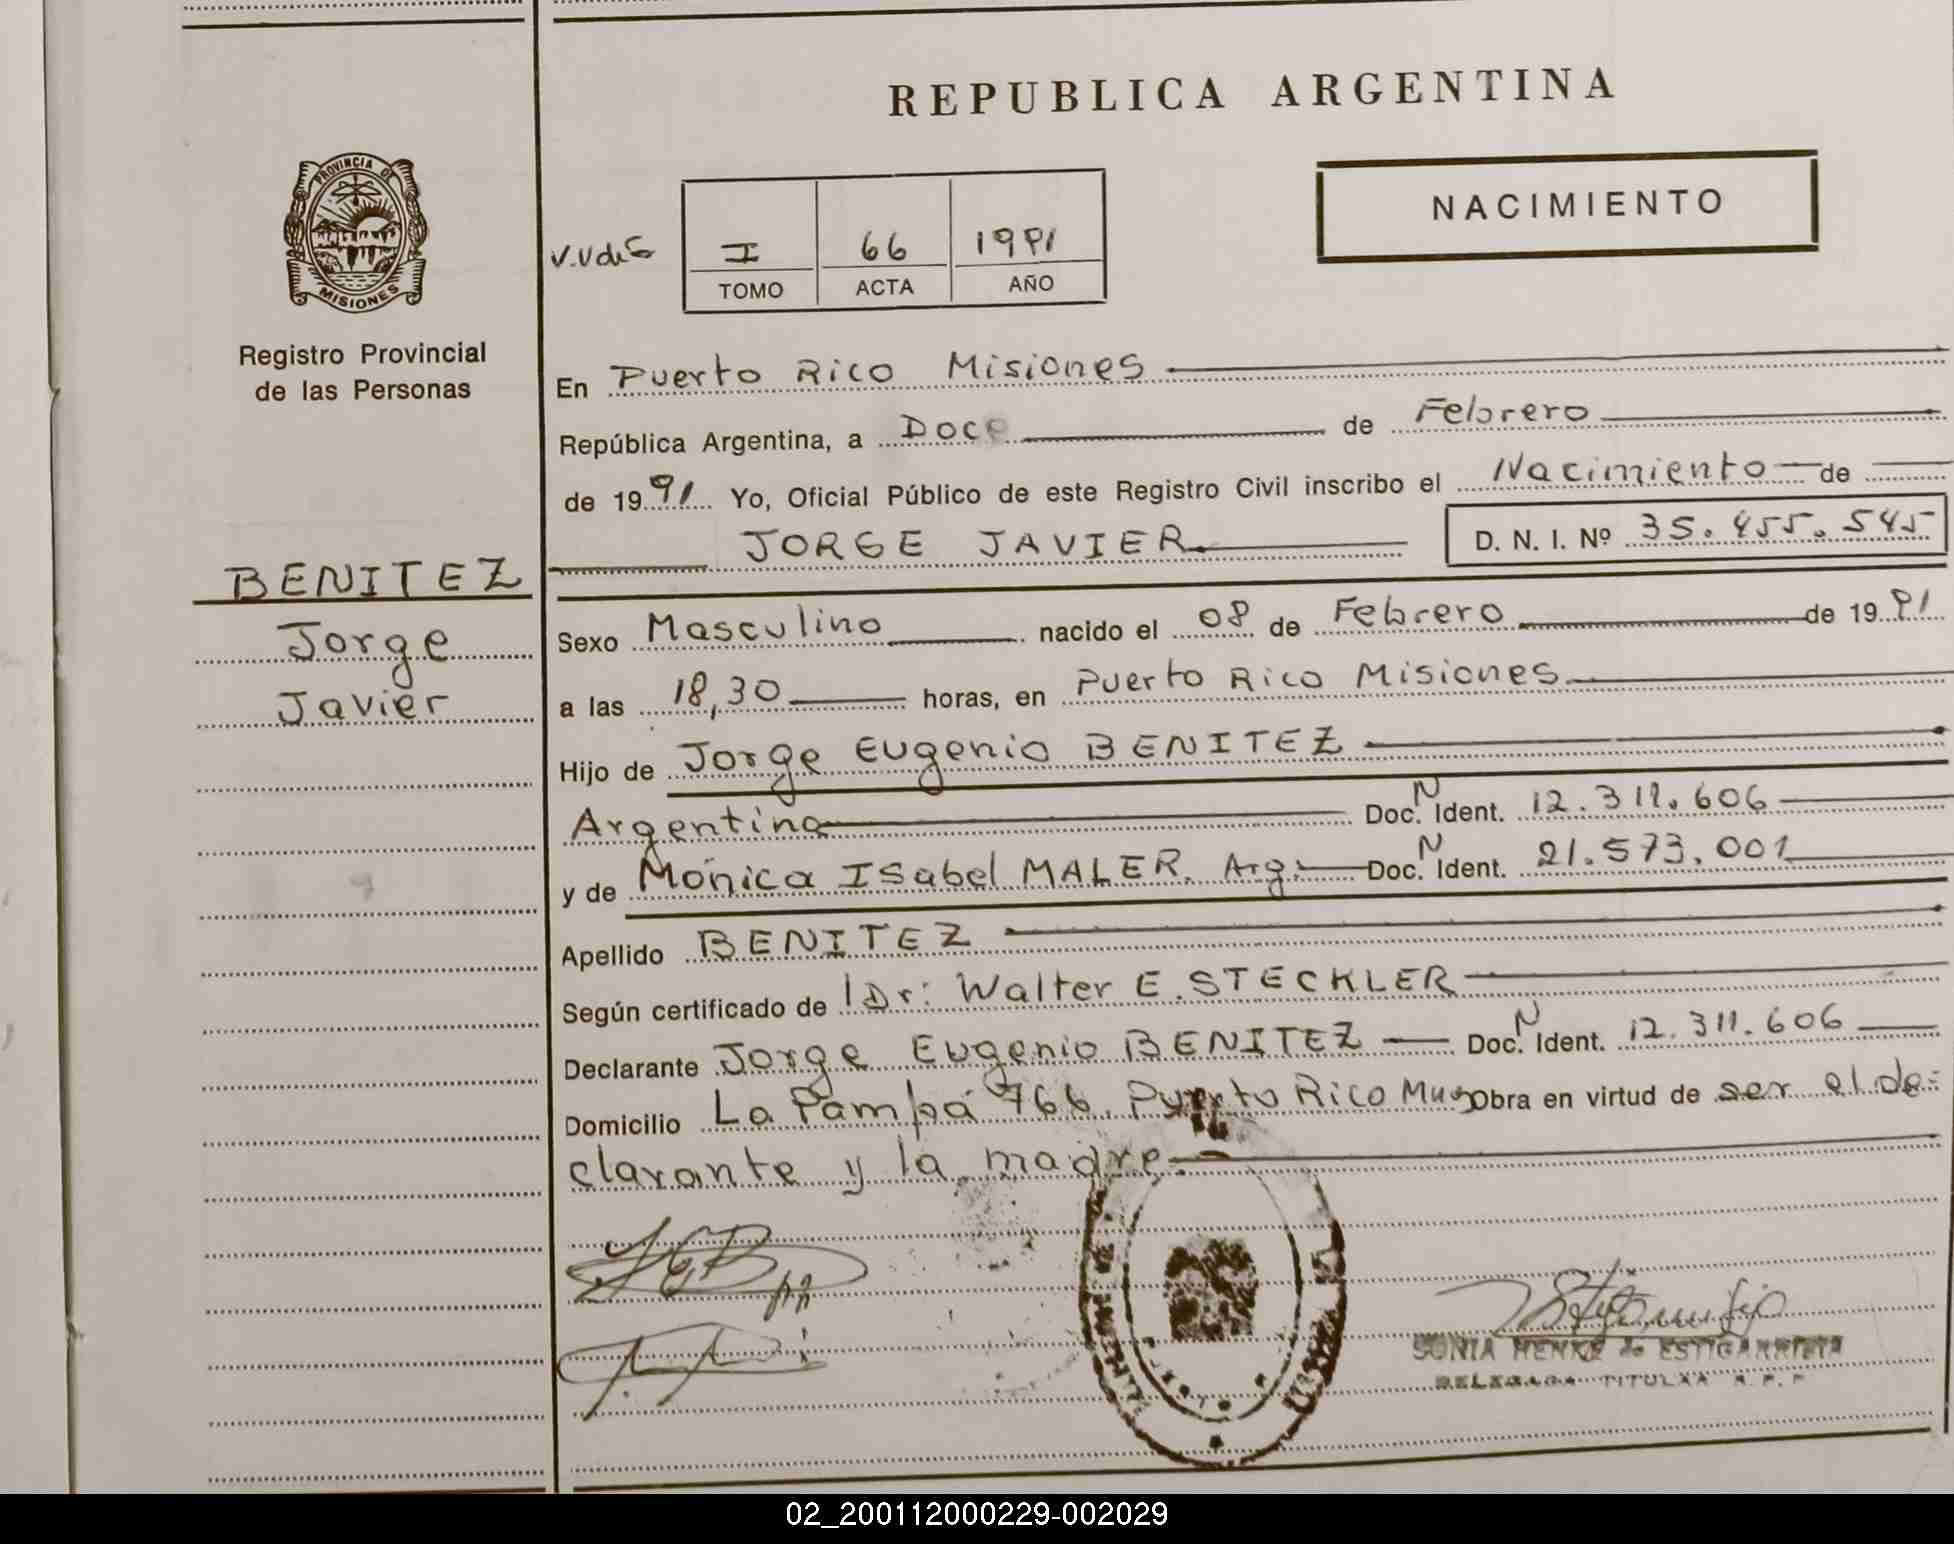 REPUBLICA ARGENTINA
PROVINCIA DE
MISIONES
Registro Provincial
de las Personas
NACIMIENTO
I 66 1991
TOMO ACTA AÑO
En Puerto Rico Misiones
República Argentina, a Doce de Febrero
de 1991 Yo, Oficial Público de este Registro Civil inscribo el Nacimiento de
JORGE JAVIER D. N. I. Nº 35.455.545
BENITEZ
Jorge
Javier
Sexo Masculino nacido el 08 de Febrero de 1991
a las 18,30 horas, en Puerto Rico Misiones
Hijo de Jorge Eugenio BENITEZ
Argentina Doc. N Ident. 12.311.606
y de Mónica ISabel MALER. Arg. Doc. N Ident. 21.573.001
Apellido BENITEZ
Según certificado de Dr: Walter E. STECKLER
Declarante Jorge Eugenio BENITEZ Doc. N Ident. 12.311.606
Domicilio La Pampa 766. Puerto Rico Obra en virtud de ser el de=
clarante y la madre.
SONIA HENKE de ESTIGARRIBIA
DELEGADA TITULAR R.P.P
02_200112000229-002029